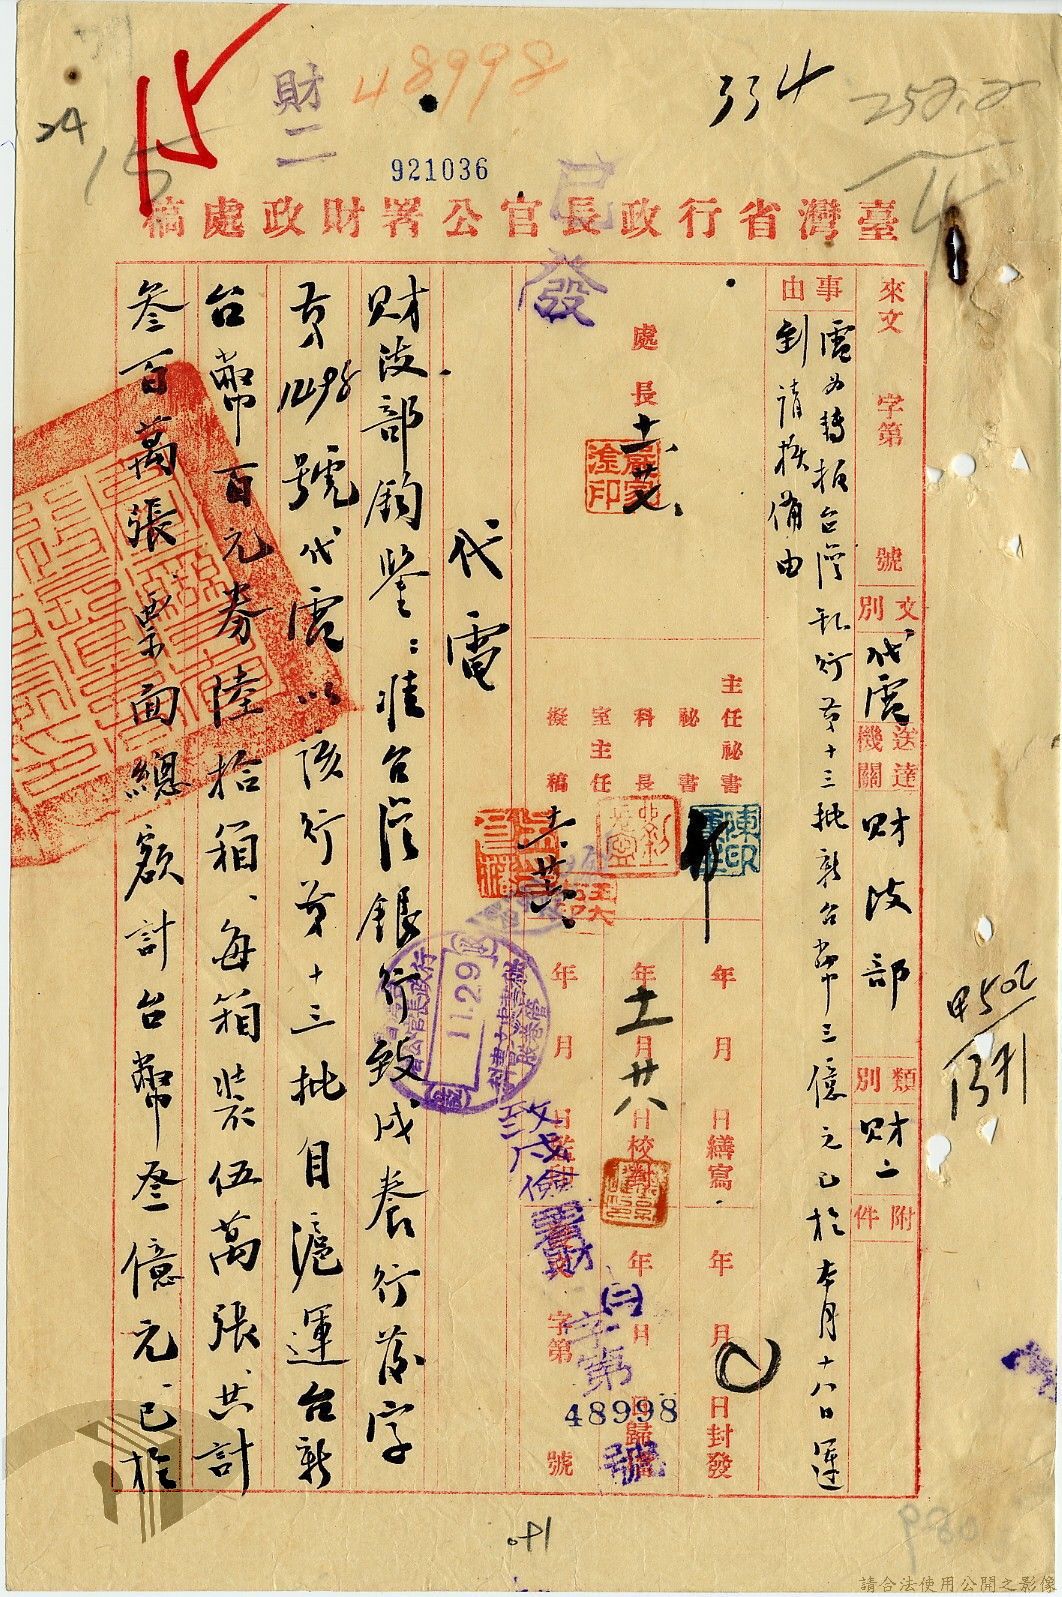 15
24
15
財二
48998
334
252.2
4
921036
已發
臺灣省行政長官公署財政處稿
來文 字第 號
文別 代電
送達機關 財政部
類別 財二
附件
事由
電為轉報台灣銀行第十三批新台幣三億元已於本月十八日運
到請核備由
處長
十一、廿九、
主任秘書
秘書
科長
室主任
擬稿
十一、廿八
年 月 日繕寫
年 月 日校對
十一 廿八
年 月 日監印
年 月 日封發
年 月 日歸檔
發文 字第 號
11.2.9
致戌儉署財(二)字第48998號
代電
財政部鈞鑒：准台灣銀行致戌養行發字
第1249號代電以該行第十三批自滬運台新
台幣百元券陸拾箱、每箱裝伍萬張、共計
叁百萬張、票面總額計台幣叁億元、已於
140
請合法使用公開之影像